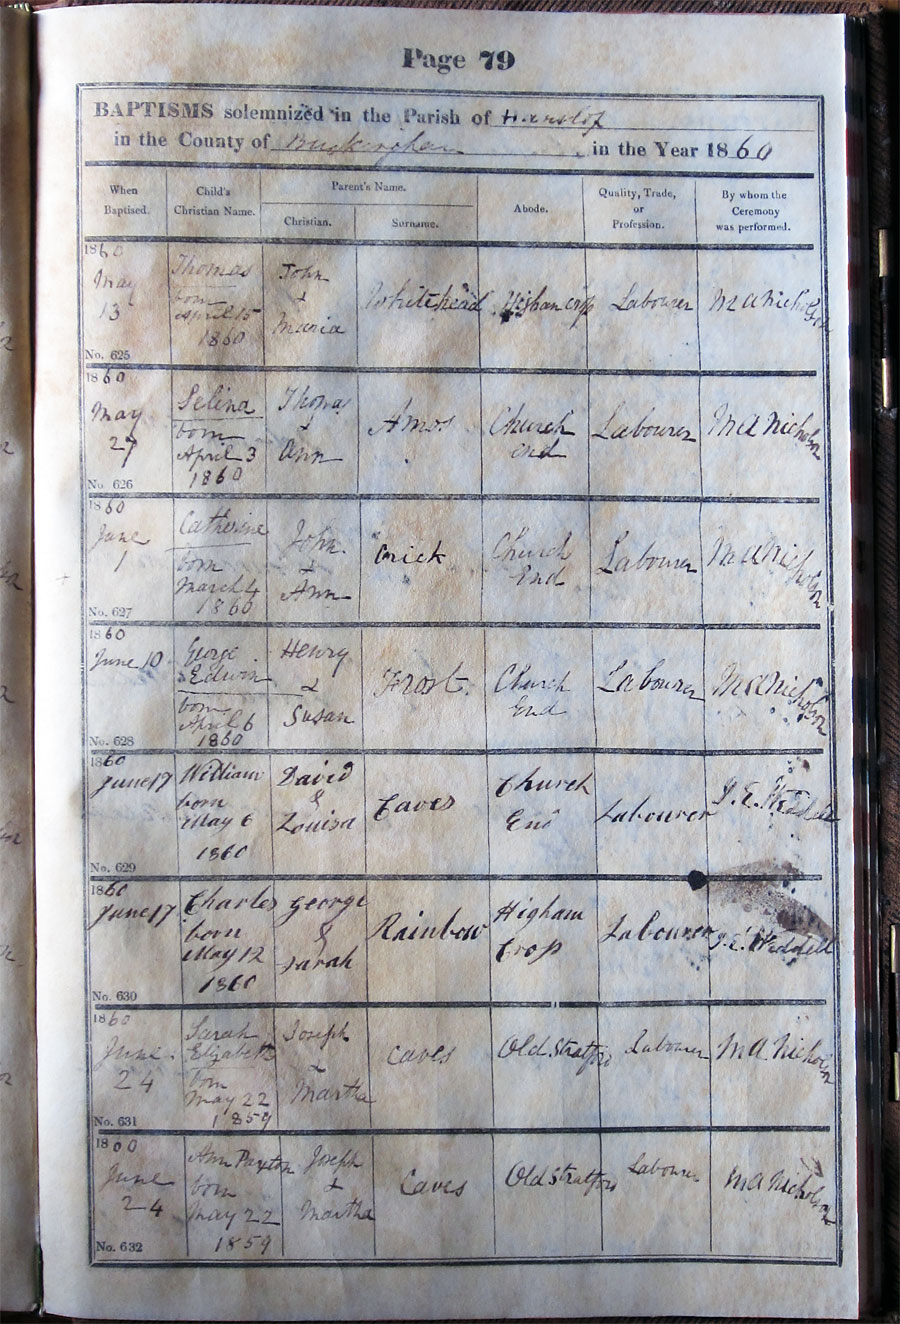 Page 79
BAPTISMS solemnized in the Parish of Hanslop
in the County of Buckingham in the Year 1860
When Baptised.
Child's Christian Name.
Parent's Name.
Christian.
Surname.
Abode.
Quality, Trade, or Profession.
By whom the Ceremony was performed.
1860
May
13
No. 625
Thomas
born
April 15
1860
John
&
Maria
Whitehead
Higham Crop
Labourer
M A Nicholson
1860
May
27
No. 626
Selina
born
April 3
1860
Thomas
&
Ann
Amos
Church
End
Labourer
M A Nicholson
1860
June
1
No. 627
Catherine
born
March 4
1860
John
&
Ann
Crick
Church
End
Labourer
M A Nicholson
1860
June 10
No. 628
George
Edwin
born
April 6
1860
Henry
&
Susan
Frost
Church
End
Labourer
M A Nicholson
1860
June 17
No. 629
William
born
May 6
1860
David
&
Louisa
Eaves
Church
End
Labourer
J. E. Weddell
1860
June 17
No. 630
Charles
born
May 12
1860
George
&
Sarah
Rainbow
Higham
Crop
Labourer
J. E. Weddell
1860
June
24
No. 631
Sarah
Elizabeth
born
May 22
1859
Joseph
&
Martha
Caves
Old Stratford
Labourer
M A. Nicholson
1860
June
24
No. 632
Ann Paxton
born
May 22
1859
Joseph
&
Martha
Caves
Old Stratford
Labourer
M A Nicholson